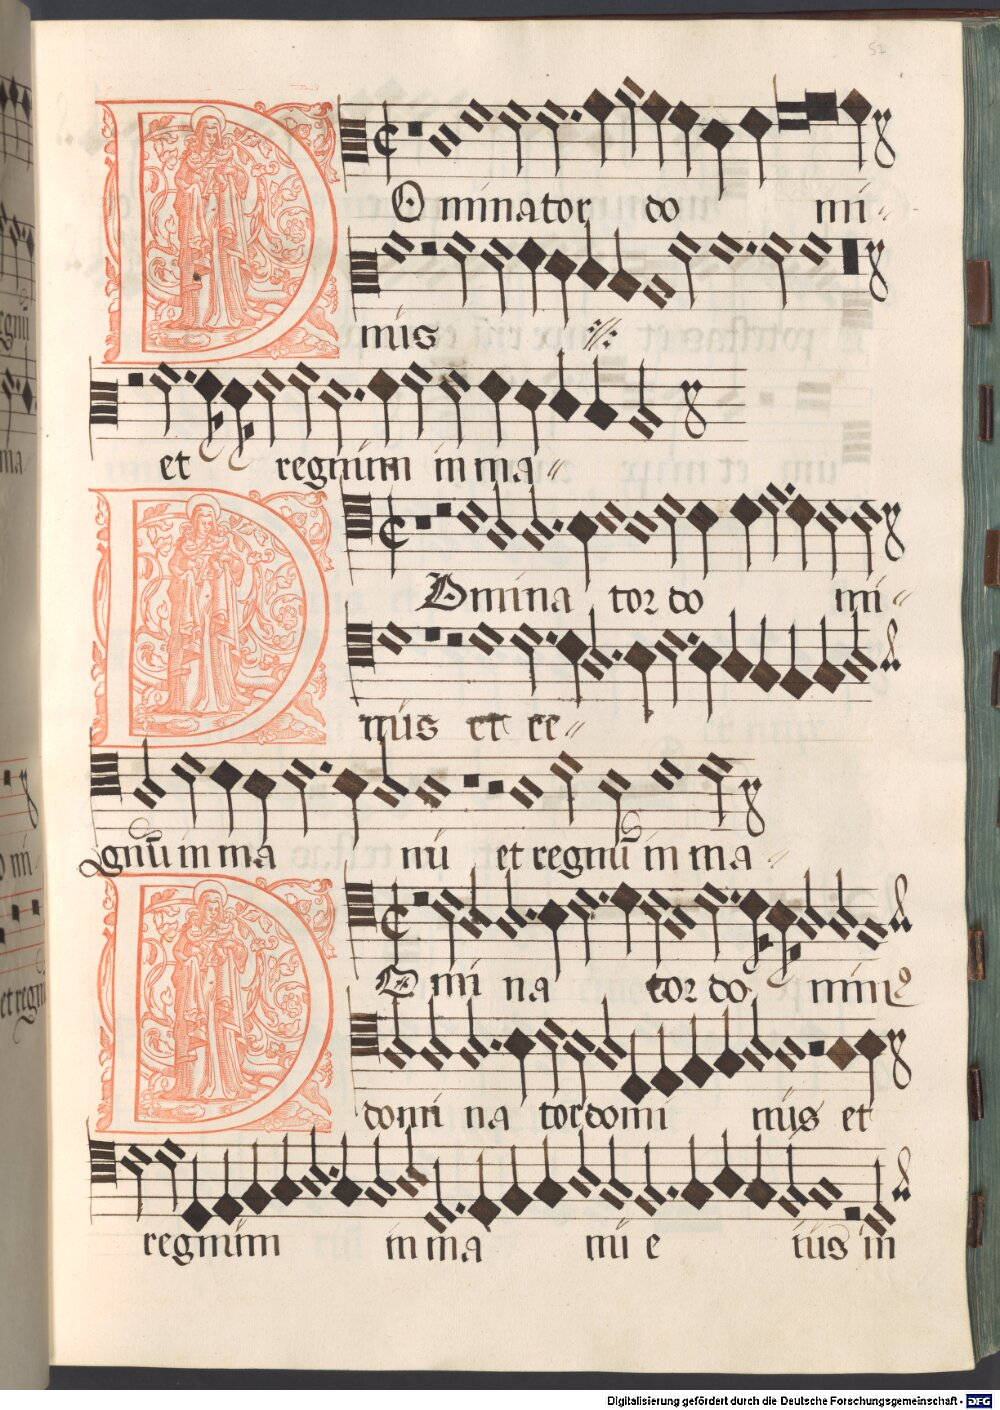 57
DOminator do mi-
nus
et regnum in ma-
DOmina tor do mi-
nus et re-
gnū in ma nu et regnū in ma
DOmi na tor do mine
domi na tor domi nus et
regnum in ma nu e ius in
Digitalisierung gefördert durch die Deutsche Forschungsgemeinschaft - DFG